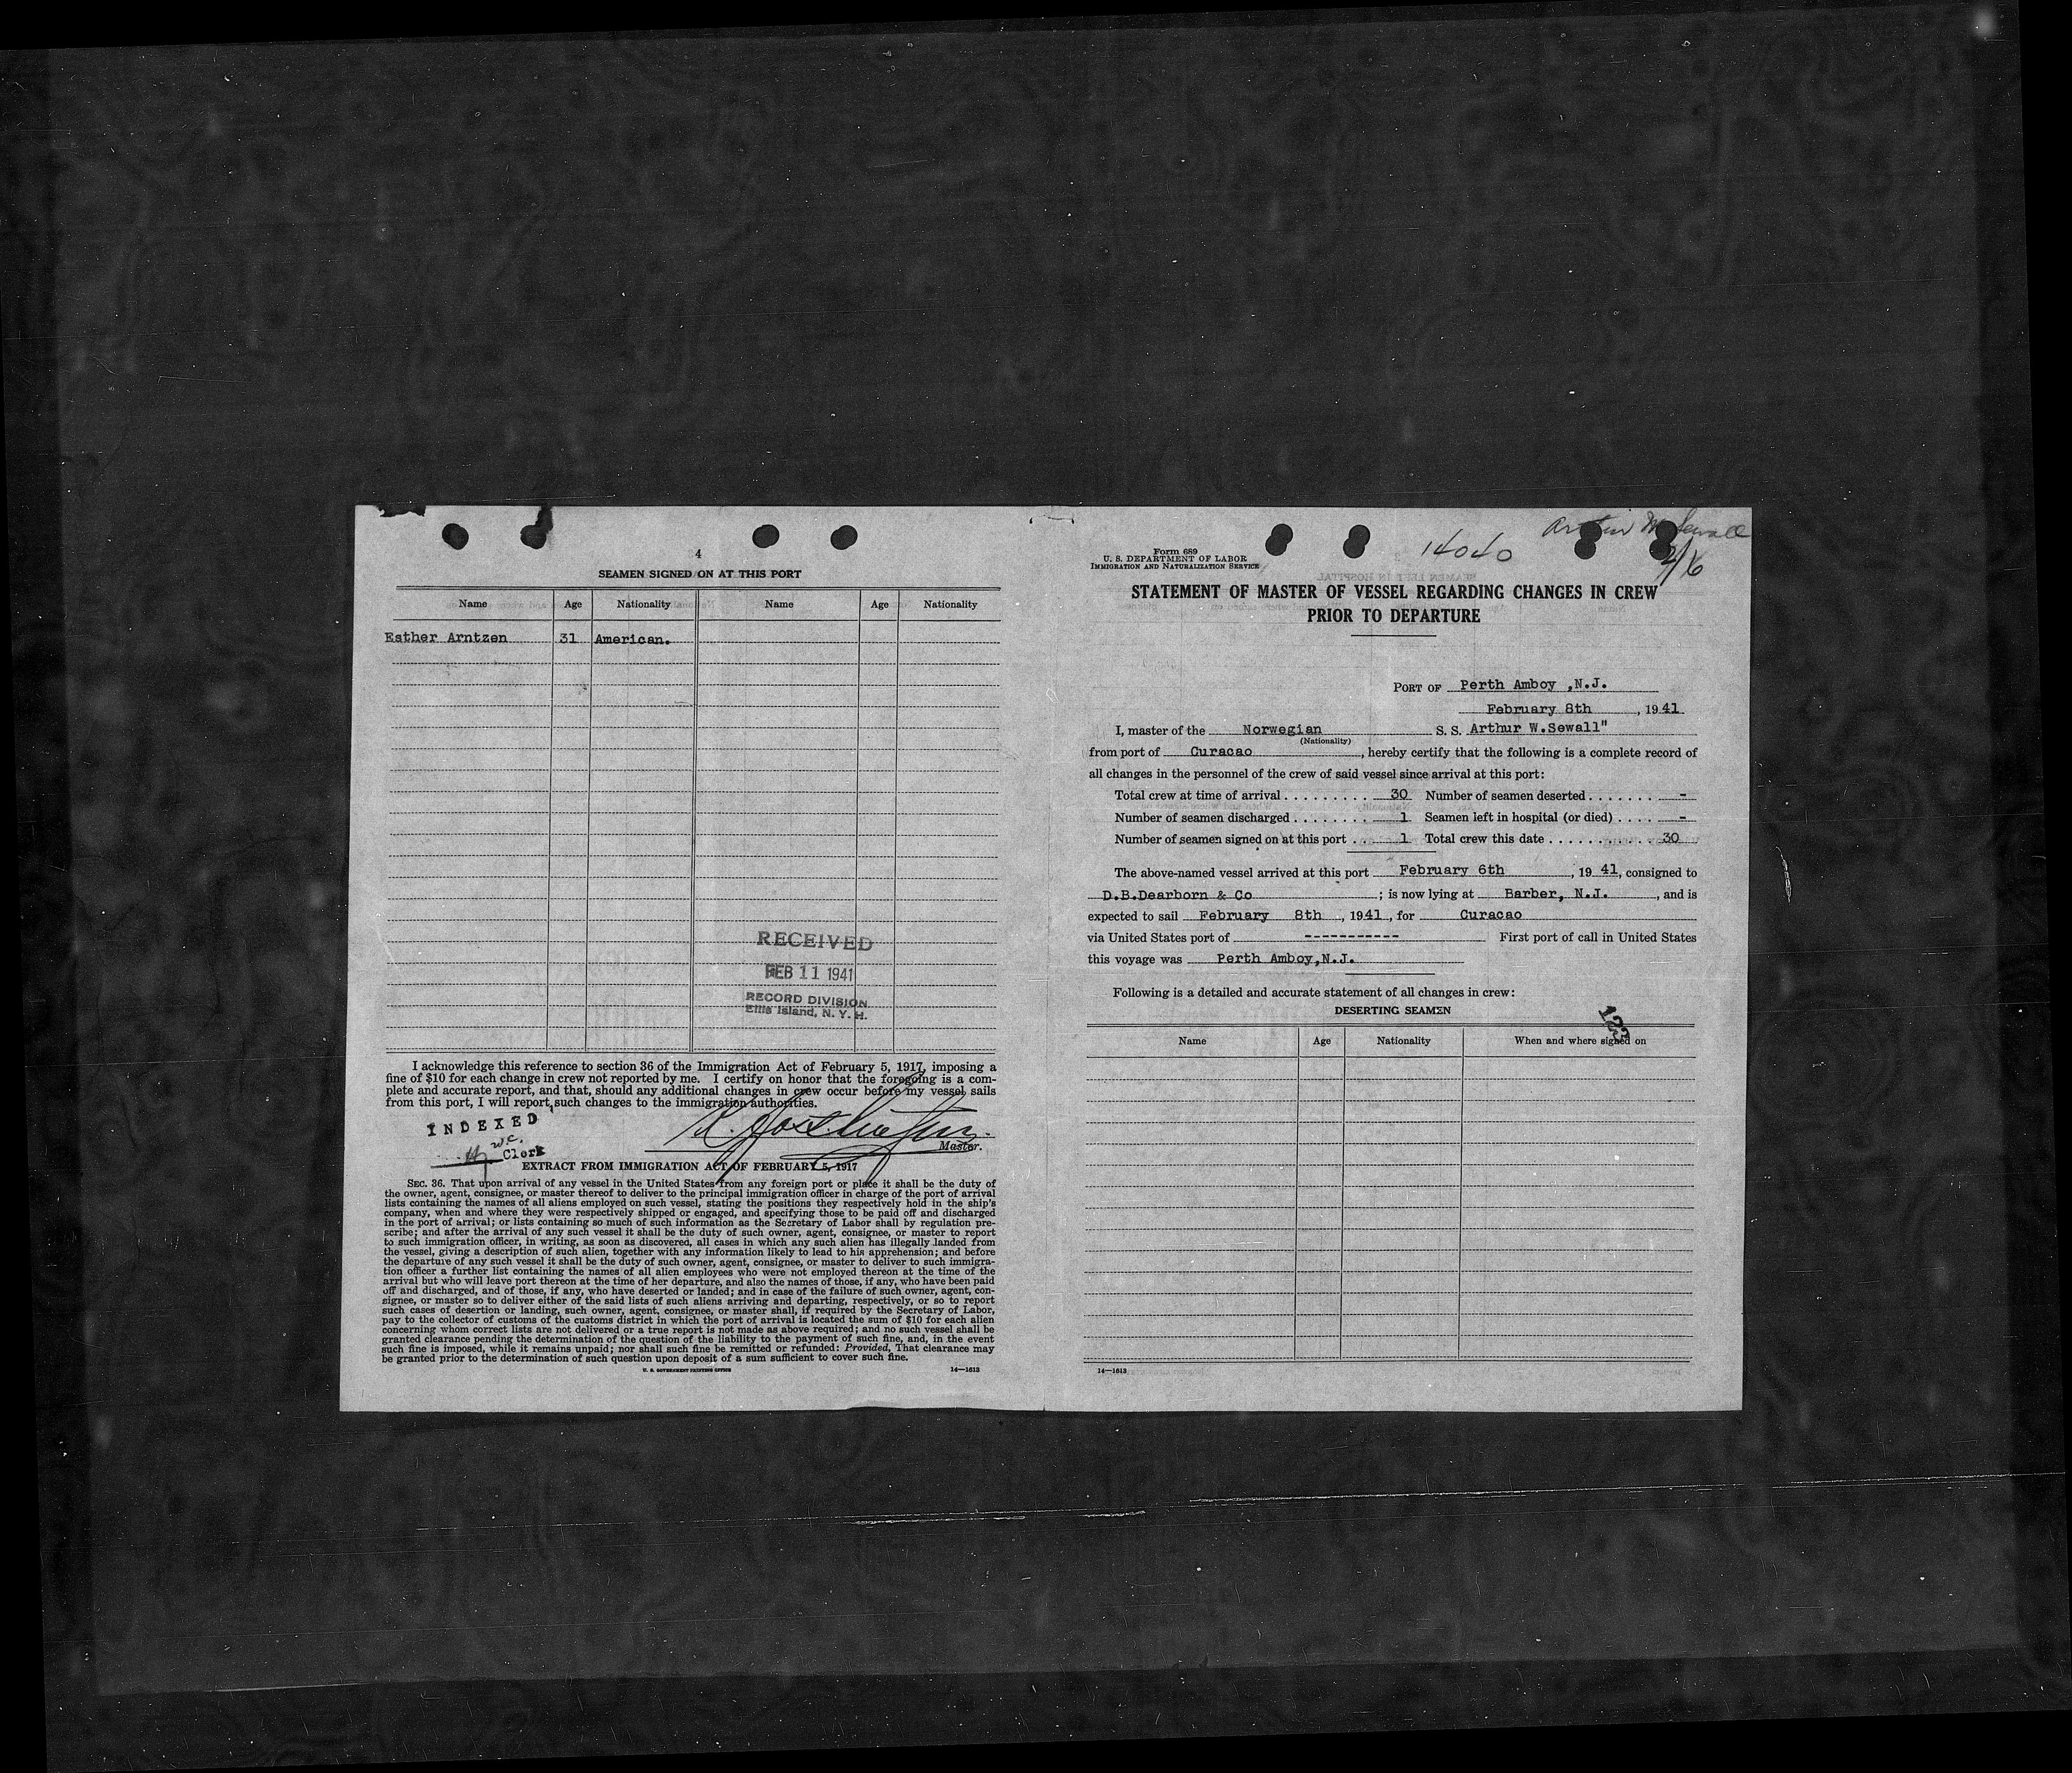 4
SEAMEN SIGNED ON AT THIS PORT
Name Age Nationality Name Age Nationality
Esther Arntzen 31 American.
RECEIVED
FEB 11 1941
RECORD DIVISION
Ellis Island, N. Y. H.
I acknowledge this reference to section 36 of the Immigration Act of February 5, 1917, imposing a
fine of $10 for each change in crew not reported by me. I certify on honor that the foregoing is a com-
plete and accurate report, and that, should any additional changes in crew occur before my vessel sails
from this port, I will report such changes to the immigration authorities.
INDEXED
w.c.
Clerk
Master.
EXTRACT FROM IMMIGRATION ACT OF FEBRUARY 5, 1917
SEC. 36. That upon arrival of any vessel in the United States from any foreign port or place it shall be the duty of
the owner, agent, consignee, or master thereof to deliver to the principal immigration officer in charge of the port of arrival
lists containing the names of all aliens employed on such vessel, stating the positions they respectively hold in the ship's
company, when and where they were respectively shipped or engaged, and specifying those to be paid off and discharged
in the port of arrival; or lists containing so much of such information as the Secretary of Labor shall by regulation pre-
scribe; and after the arrival of any such vessel it shall be the duty of such owner, agent, consignee, or master to report
to such immigration officer, in writing, as soon as discovered, all cases in which any such alien has illegally landed from
the vessel, giving a description of such alien, together with any information likely to lead to his apprehension; and before
the departure of any such vessel it shall be the duty of such owner, agent, consignee, or master to deliver to such immigra-
tion officer a further list containing the names of all alien employees who were not employed thereon at the time of the
arrival but who will leave port thereon at the time of her departure, and also the names of those, if any, who have been paid
off and discharged, and of those, if any, who have deserted or landed; and in case of the failure of such owner, agent, con-
signee, or master so to deliver either of the said lists of such aliens arriving and departing, respectively, or so to report
such cases of desertion or landing, such owner, agent, consignee, or master shall, if required by the Secretary of Labor,
pay to the collector of customs of the customs district in which the port of arrival is located the sum of $10 for each alien
concerning whom correct lists are not delivered or a true report is not made as above required; and no such vessel shall be
granted clearance pending the determination of the question of the liability to the payment of such fine, and, in the event
such fine is imposed, while it remains unpaid; nor shall such fine be remitted or refunded: Provided, That clearance may
be granted prior to the determination of such question upon deposit of a sum sufficient to cover such fine.
U. S. GOVERNMENT PRINTING OFFICE 14—1613
Form 689
U. S. DEPARTMENT OF LABOR
IMMIGRATION AND NATURALIZATION SERVICE
14040
Arthur W Sewall
2/6
STATEMENT OF MASTER OF VESSEL REGARDING CHANGES IN CREW
PRIOR TO DEPARTURE
PORT OF Perth Amboy ,N.J.
February 8th , 1941
I, master of the Norwegian S. S. Arthur W.Sewall"
(Nationality)
from port of Curacao , hereby certify that the following is a complete record of
all changes in the personnel of the crew of said vessel since arrival at this port:
Total crew at time of arrival . . . . . . . . . 30 Number of seamen deserted . . . . . . . -
Number of seamen discharged . . . . . . . . 1 Seamen left in hospital (or died) . . . . -
Number of seamen signed on at this port . . 1 Total crew this date . . . . . . . . . . . 30
The above-named vessel arrived at this port February 6th , 19 41, consigned to
D.B.Dearborn & Co ; is now lying at Barber, N.J. , and is
expected to sail February 8th , 1941 , for Curacao
via United States port of ----------- First port of call in United States
this voyage was Perth Amboy,N.J.
Following is a detailed and accurate statement of all changes in crew:
DESERTING SEAMEN
123
Name Age Nationality When and where signed on
14—1613